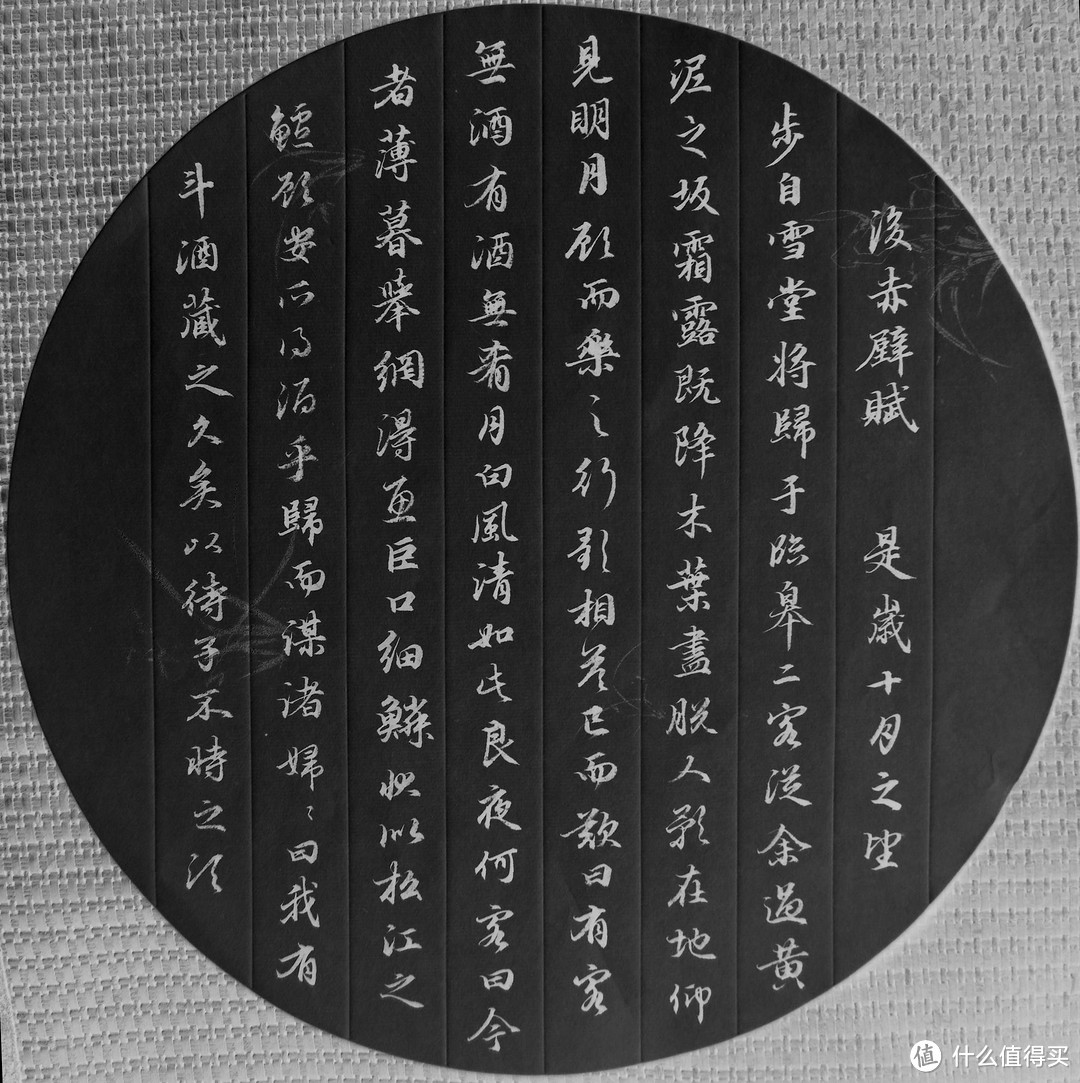 後赤壁賦 是歲十月之望
步自雪堂將歸于臨皋二客從余過黃
泥之坂霜露既降木葉盡脫人影在地仰
見明月顧而樂之行歌相答已而歎曰有客
無酒有酒無肴月白風清如此良夜何客曰今
者薄暮舉網得魚巨口細鱗狀似松江之
鱸顧安所得酒乎歸而謀諸婦〻曰我有
斗酒藏之久矣以待子不時之須
值 什么值得买